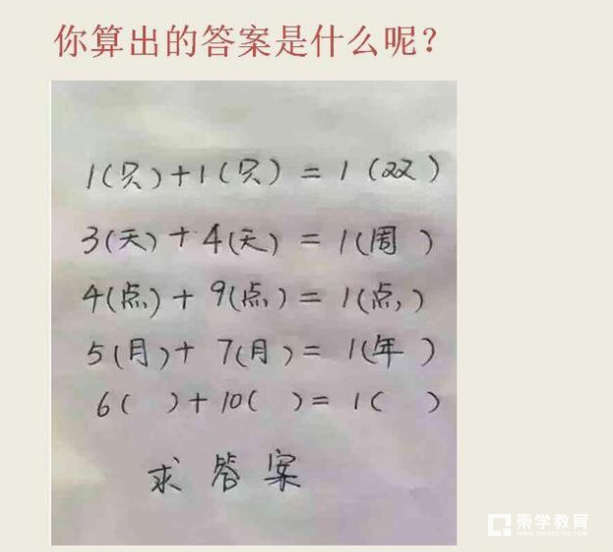 你算出的答案是什么呢?
1(只)+1(只)=1(双)
3(天)+4(天)=1(周)
4(点)+9(点)=1(点)
5(月)+7(月)=1(年)
6( )+10( )=1( )
求答案
秦学教育